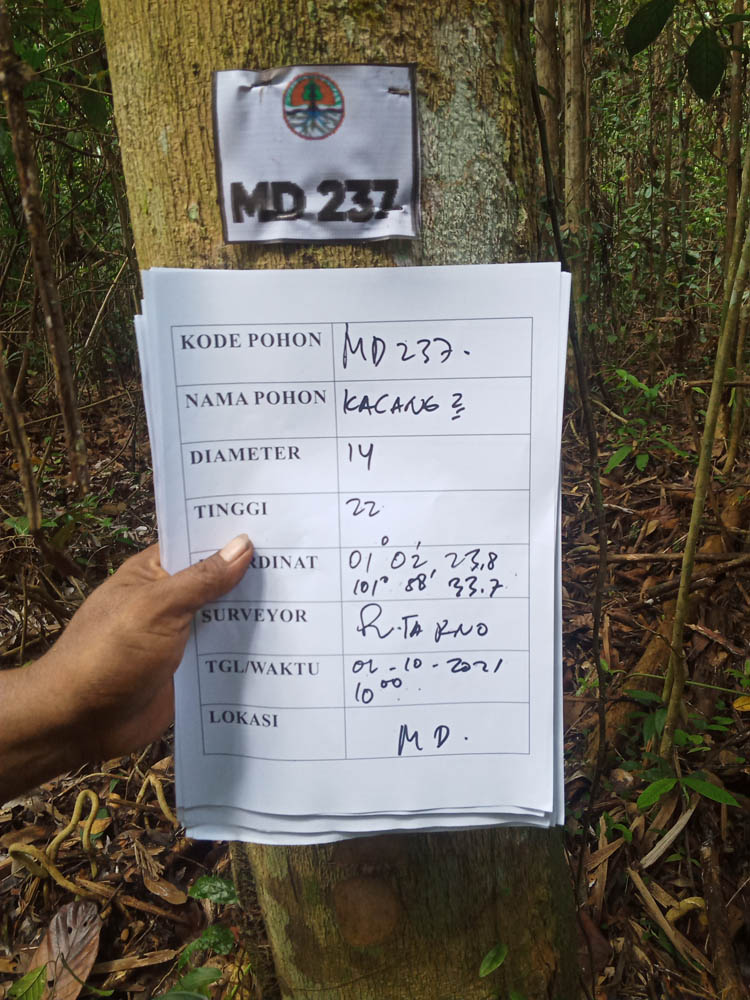 MD 237
KODE POHON MD 237.
NAMA POHON KACANG 2
DIAMETER 14
TINGGI 22
RDINAT 01° 02' 23,8
101° 88' 33.7
SURVEYOR R.TARNO
TGL/WAKTU 01-10-2021
10 00
LOKASI MD.